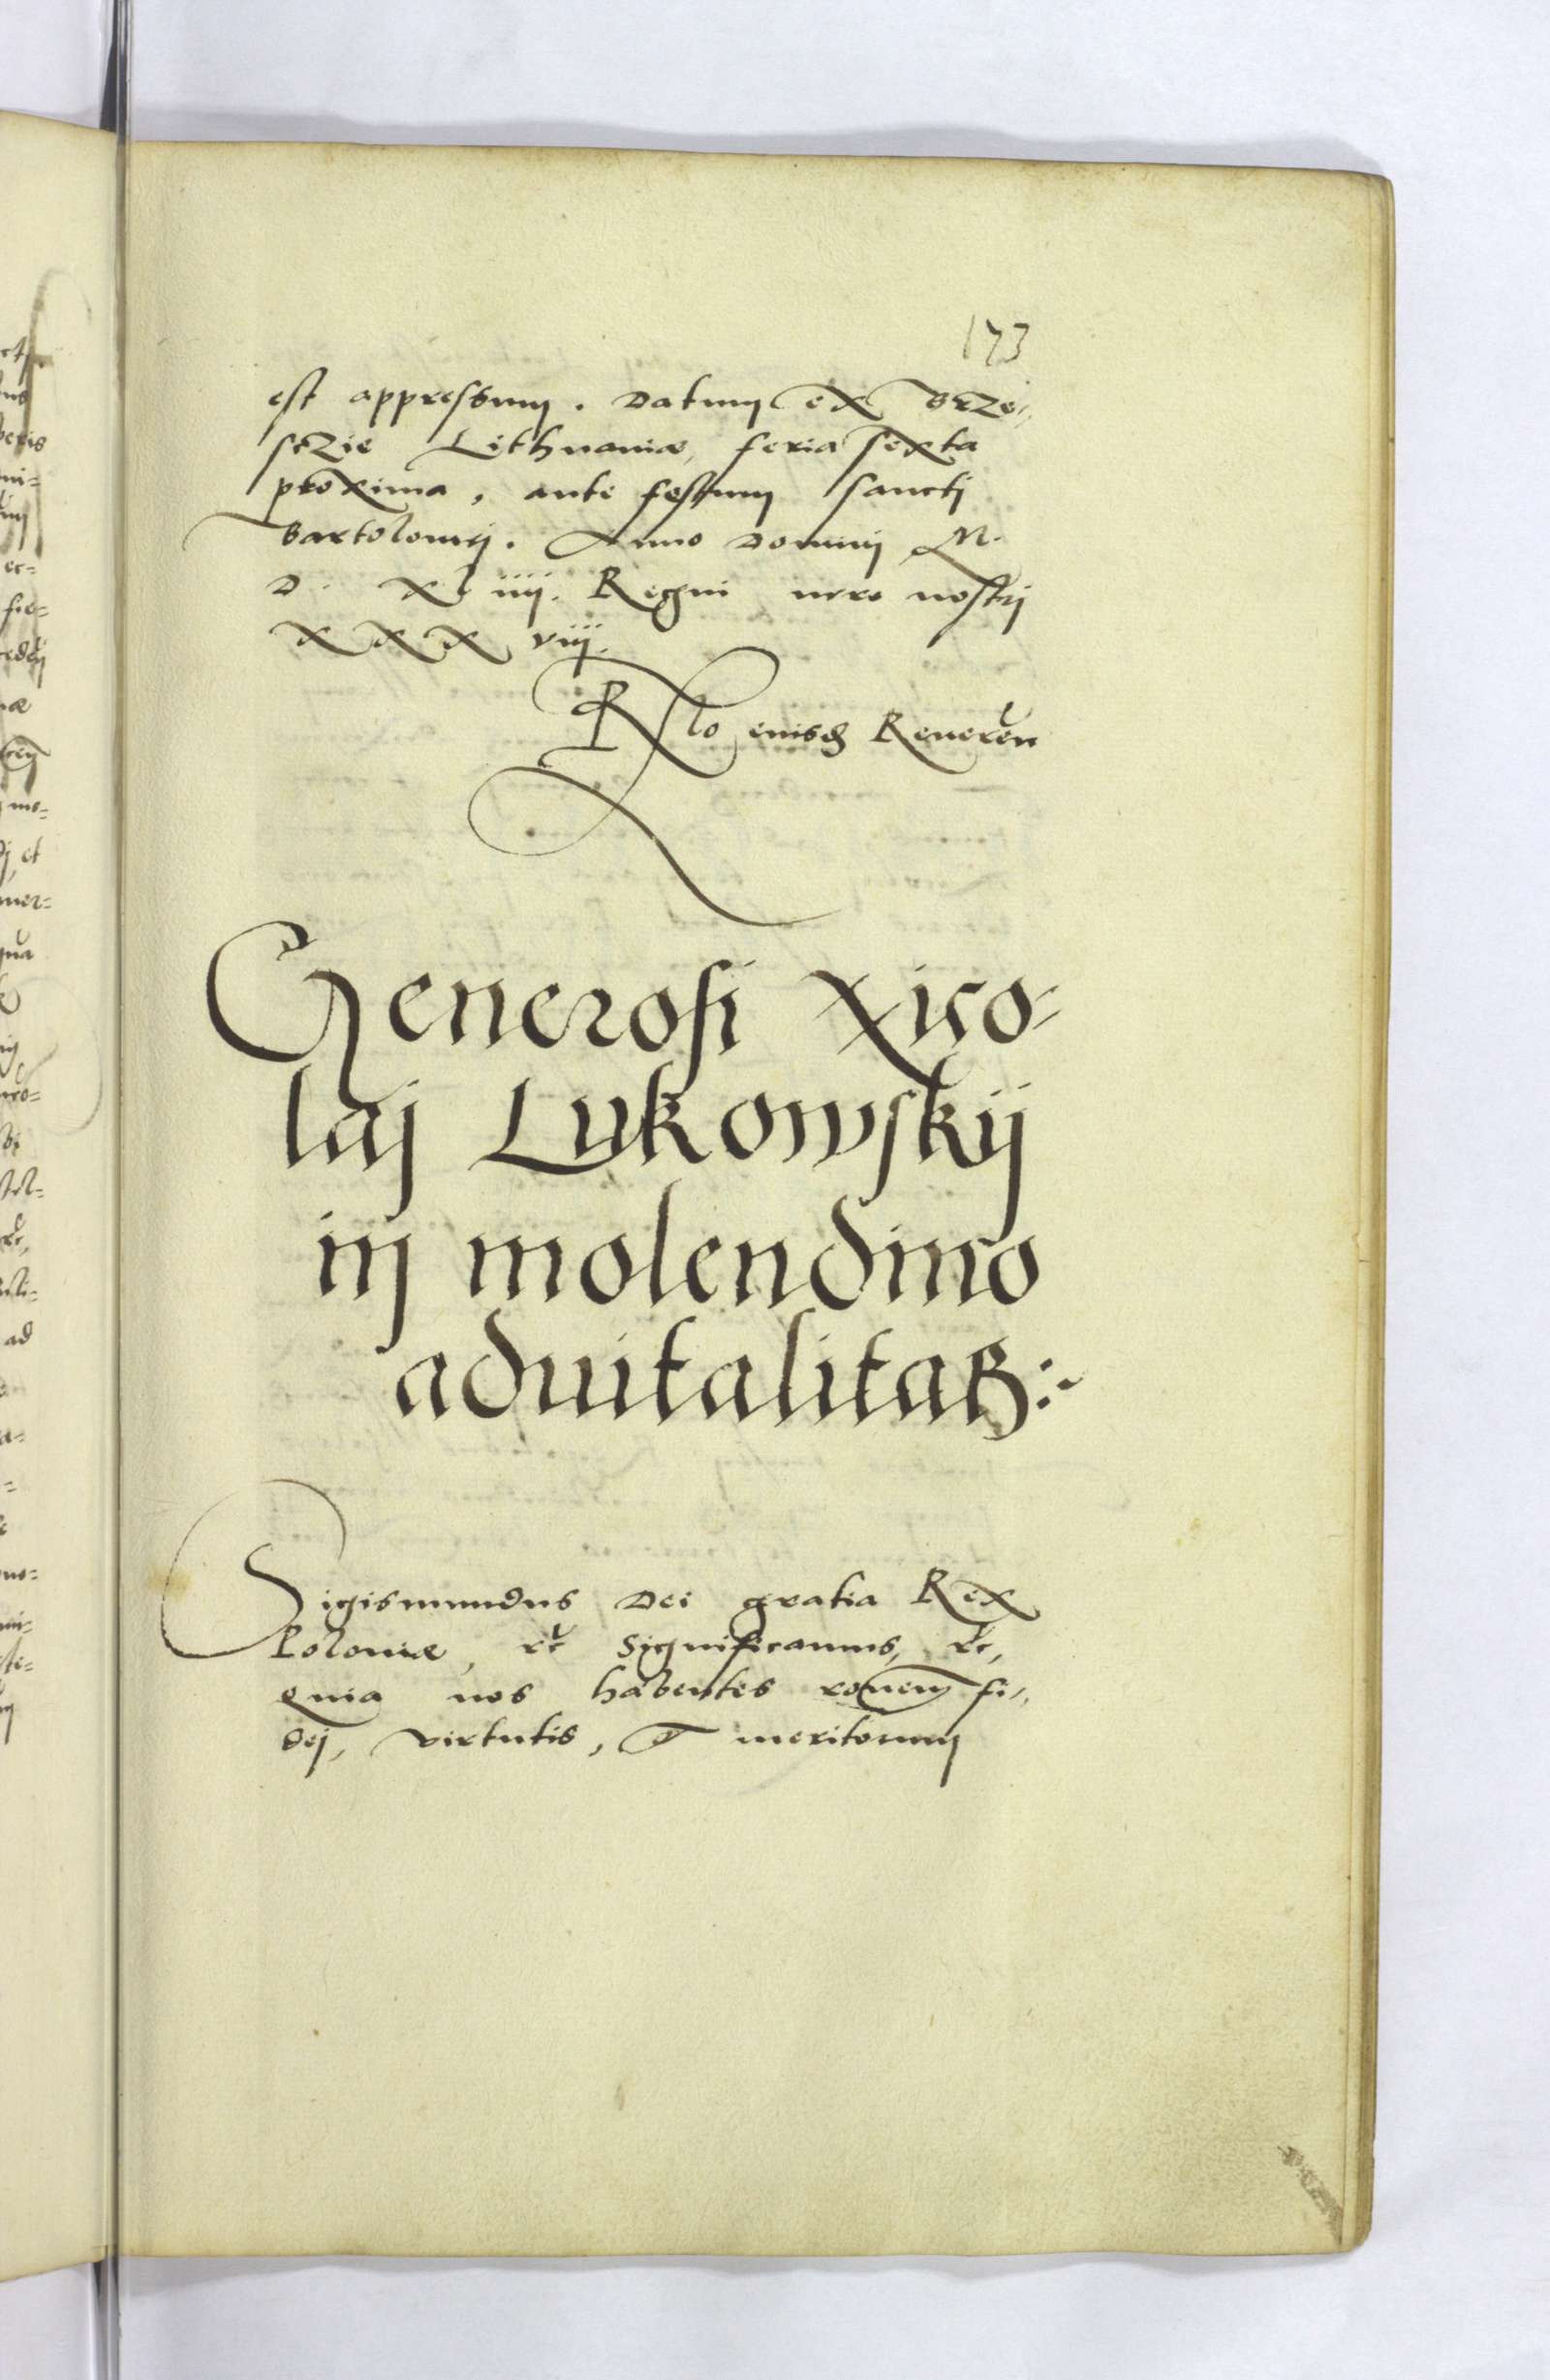 173
est appressum. Datum ex Brze,,
sczie Lithuaniæ, feria sexta
proxima, ante festum sancti
Bartolomej. Anno Dominj M.
D. XL iiij. Regni vero nostrj
X X X viij.
Rlo eiusdem Reueren
Generosi Nico-
laj Lukowskij
in molendino
aduitalitas:~
Sigismundus Dei gratia Rex
Poloniæ, etc Significamus, etc,
quia nos habentes ronem fi,,
dej, virtutis, et meritorum